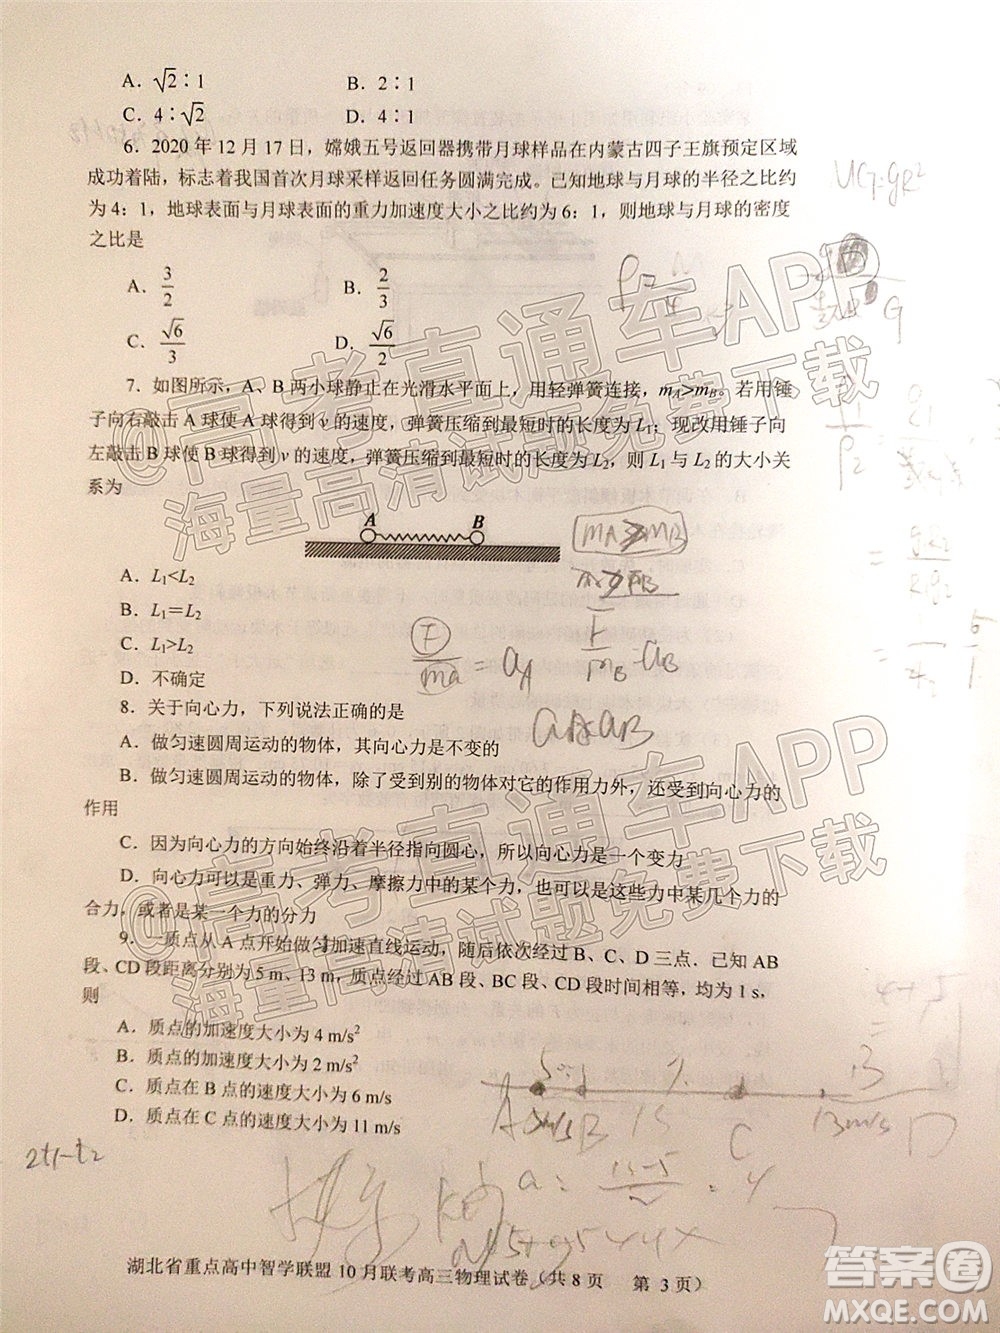 A. √2∶1
B. 2∶1
C. 4∶√2
D. 4∶1
6. 2020 年 12 月 17 日，嫦娥五号返回器携带月球样品在内蒙古四子王旗预定区域
成功着陆，标志着我国首次月球采样返回任务圆满完成。已知地球与月球的半径之比约
为 4：1，地球表面与月球表面的重力加速度大小之比约为 6：1，则地球与月球的密度
之比是
A. 3/2
B. 2/3
C. √6/3
D. √6/2
7. 如图所示，A、B 两小球静止在光滑水平面上，用轻弹簧连接，mA>mB。若用锤
子向右敲击 A 球使 A 球得到 v 的速度，弹簧压缩到最短时的长度为 L1；现改用锤子向
左敲击 B 球使 B 球得到 v 的速度，弹簧压缩到最短时的长度为 L2，则 L1 与 L2 的大小关
系为
A B
A. L1<L2
B. L1＝L2
C. L1>L2
D. 不确定
8. 关于向心力，下列说法正确的是
A. 做匀速圆周运动的物体，其向心力是不变的
B. 做匀速圆周运动的物体，除了受到别的物体对它的作用力外，还受到向心力的
作用
C. 因为向心力的方向始终沿着半径指向圆心，所以向心力是一个变力
D. 向心力可以是重力、弹力、摩擦力中的某个力，也可以是这些力中某几个力的
合力，或者是某一个力的分力
9. 一质点从 A 点开始做匀加速直线运动，随后依次经过 B、C、D 三点．已知 AB
段、CD 段距离分别为 5 m、13 m，质点经过 AB 段、BC 段、CD 段时间相等，均为 1 s，
则
A. 质点的加速度大小为 4 m/s²
B. 质点的加速度大小为 2 m/s²
C. 质点在 B 点的速度大小为 6 m/s
D. 质点在 C 点的速度大小为 11 m/s
湖北省重点高中智学联盟 10 月联考高三物理试卷（共 8 页 第 3 页）
@高考直通车APP
海量高清试题免费下载
@高考直通车APP
海量高清试题免费下载
mA>mB
F/ma = aA
F/mB = aB
2t1-t2
13m/s
答案圈
MXQE.COM